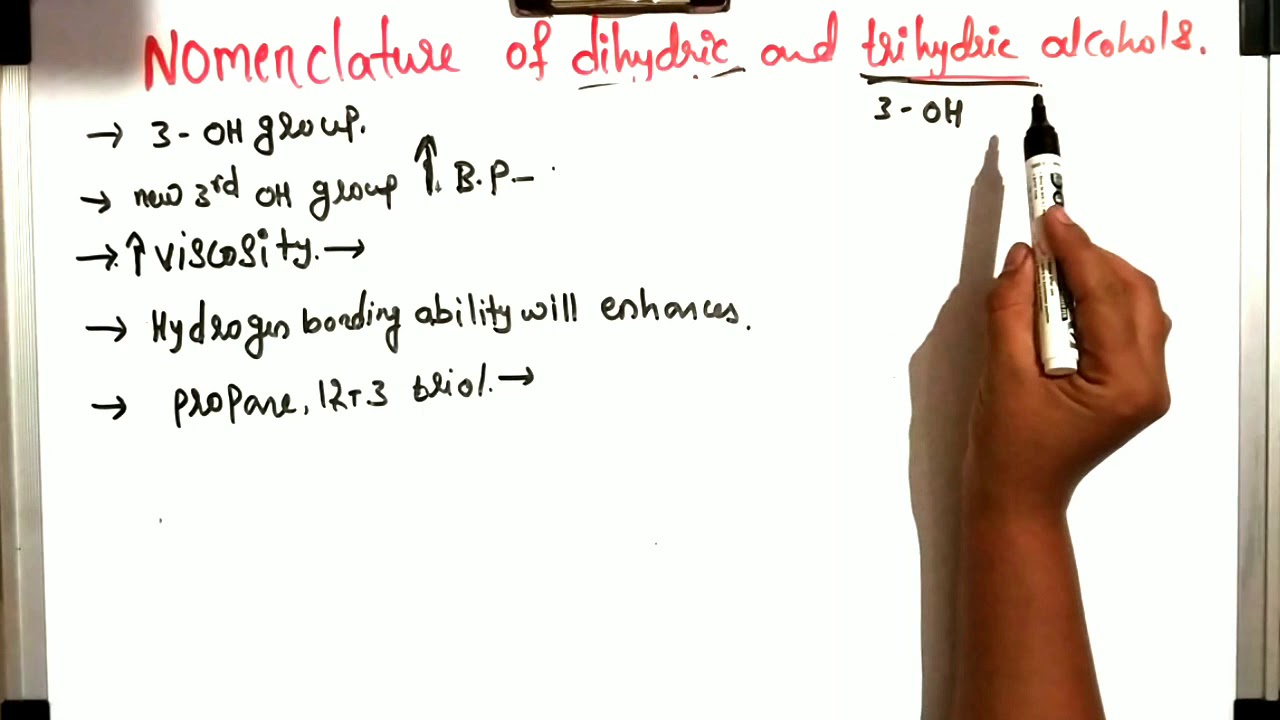 Nomenclature of dihydric and trihydric alcohols.
3-OH
→ 3-OH group.
→ new 3rd OH group ↑ B.P-
→ ↑ viscosity. →
→ Hydrogen bonding ability will enhances.
→ propane, 12+3 triol. →